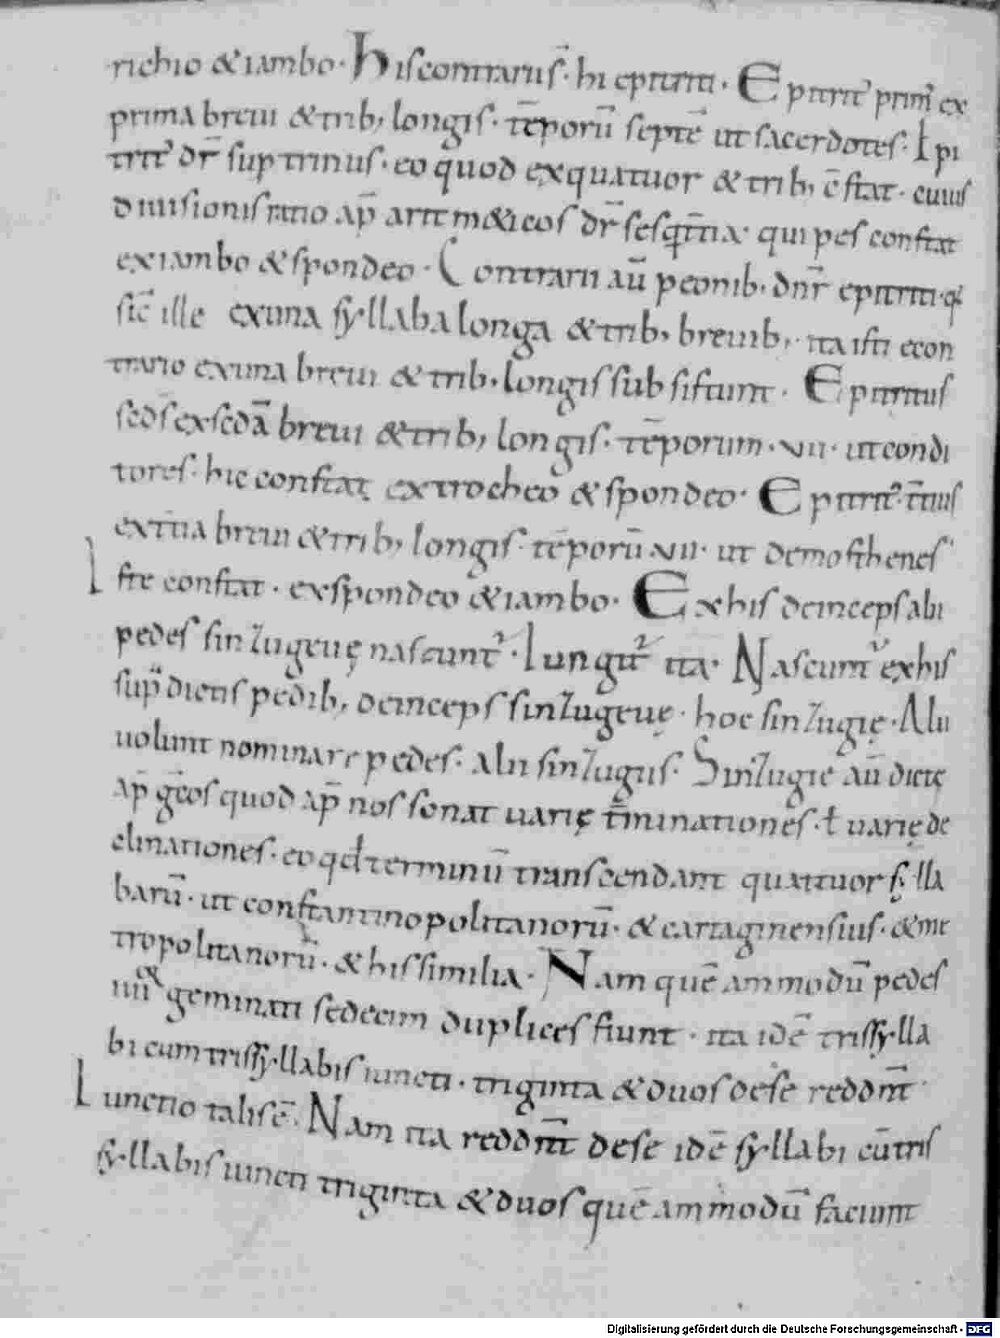 richio & iambo. His contrarius̄. hi epitriti. Epitrit᾽ prim᾽ ex
prima breui & trib; longis. tēporū septē ut sacerdotes. Ipi
trit᾽ dr̄ suptrinus. eo quod ex quatuor & trib; c̄stat. cuius
diuisionis ratio ap̄ aritm&icos dr̄ sesqt̄tia. qui pes constat
ex iambo & spondeo. Contrarii aū peonib. dnr̄ epitriti. q̄
sic̄ ille ex una syllaba longa & trib; breuib; ita isti econ
trario ex una breui & trib; longis subsistunt. Epitritus
sed̄s ex sedā breui & trib; longis. tēporum. vii. ut condi
tores. hic constat ex trocheo & spondeo. Epitrit᾽ t̄tius
ex t̄tia breui & trib; longis. tēporū vii. ut demosthenes
Iste constat. ex spondeo & iambo. Ex his deinceps alii
pedes sinzugeuę nascunt᾽. Iungūt᾽ ita. Nascunt᾽ ex his
sup̄dictis pedib; deinceps sinzugeuę. hoc sinzugię. Alii
uolunt nominare pedes. alii sinzugiis. Sinzugię aū dictę
ap̄ gc̄os quod ap̄ nos sonat uarię t̄minationes. ł uarię de
clinationes. eo qđ terminū transcendant quattuor sylla
barū. ut constantinopolitanorū. & cartaginensius. & me
tropolitanorū. & his similia. Nam quē ammodū pedes
iiii ex geminati sedecim duplices fiunt. ita idē trissylla
bi cum trissyllabis iuncti. triginta & duos de se reddnt̄.
Iunctio talis ē. Nam ita reddnt̄ de se idē syllabi cū tris
syllabis iuncti triginta & duos quē ammodū faciunt
Digitalisierung gefördert durch die Deutsche Forschungsgemeinschaft - DFG